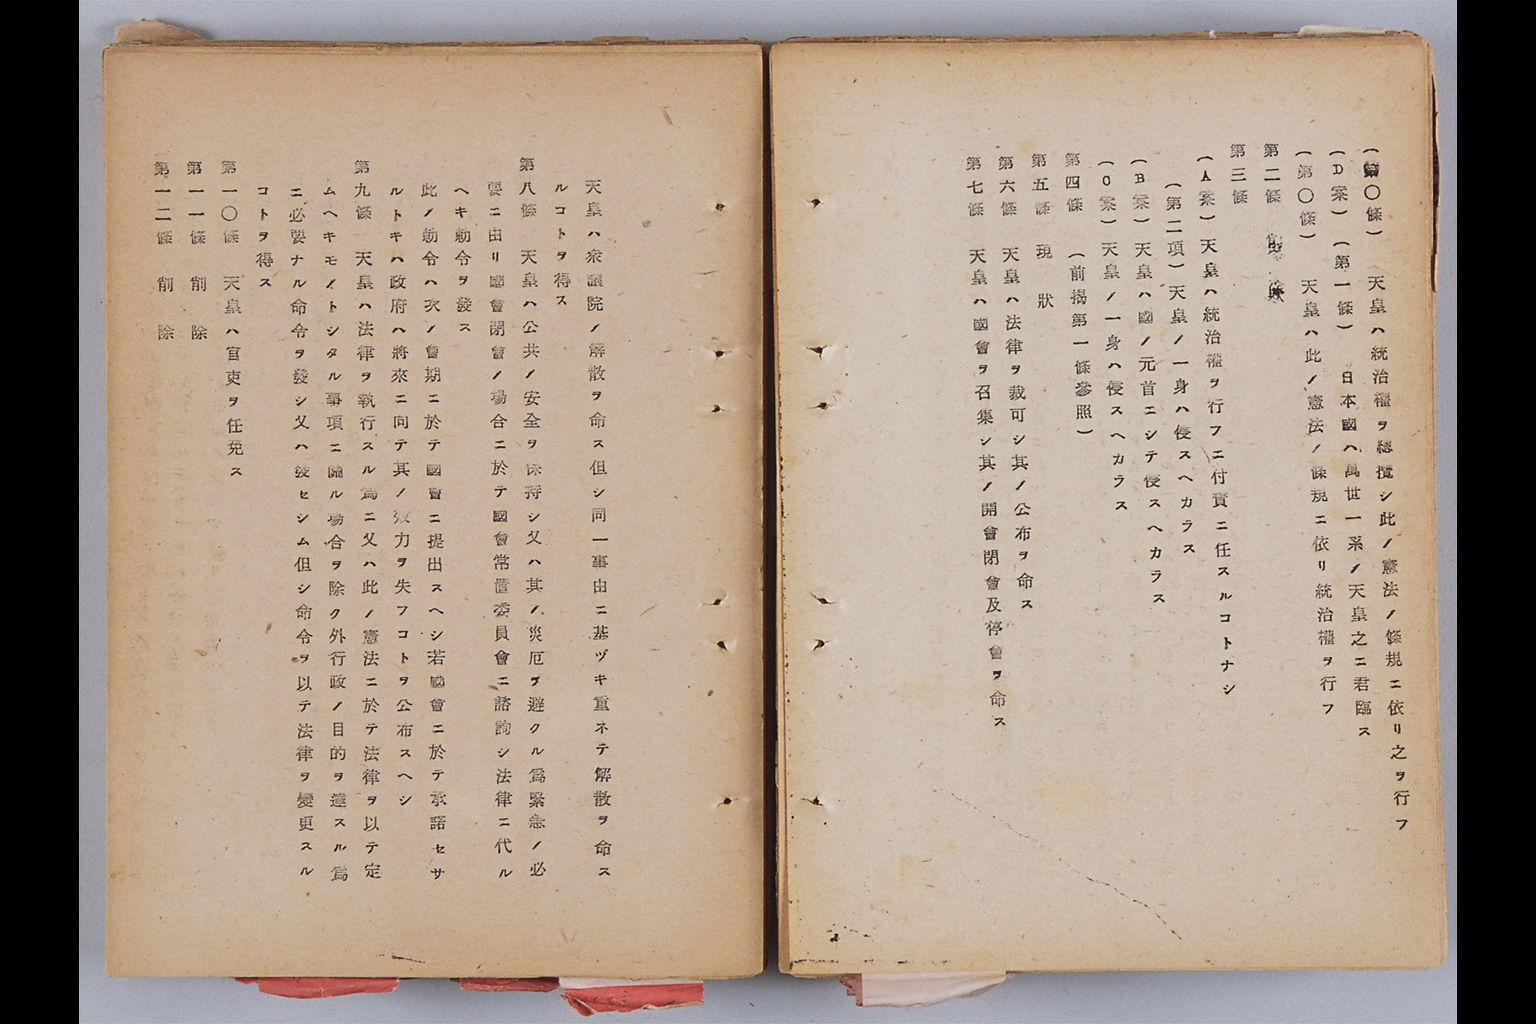 (第〇條) 天皇ハ統治權ヲ總攬シ此ノ憲法ノ條規ニ依リ之ヲ行フ
(D案)(第一條) 日本國ハ萬世一系ノ天皇之ニ君臨ス
(第〇條) 天皇ハ此ノ憲法ノ條規ニ依リ統治權ヲ行フ
第二條
第三條
(A案)天皇ハ統治權ヲ行フニ付責ニ任スルコトナシ
(第二項)天皇ノ一身ハ侵スヘカラス
(B案)天皇ハ國ノ元首ニシテ侵スヘカラス
(C案)天皇ノ一身ハ侵スヘカラス
第四條 (前揭第一條參照)
第五條 現狀
第六條 天皇ハ法律ヲ裁可シ其ノ公布ヲ命ス
第七條 天皇ハ國會ヲ召集シ其ノ開會閉會及停會ヲ命ス
天皇ハ衆議院ノ解散ヲ命ス但シ同一事由ニ基ヅキ重ネテ解散ヲ命ス
ルコトヲ得ス
第八條 天皇ハ公共ノ安全ヲ保持シ又ハ其ノ災厄ヲ避クル爲緊急ノ必
要ニ由リ國會閉會ノ場合ニ於テ國會常置委員會ニ諮詢シ法律ニ代ル
ヘキ勅令ヲ發ス
此ノ勅令ハ次ノ會期ニ於テ國會ニ提出スヘシ若國會ニ於テ承諾セサ
ルトキハ政府ハ將來ニ向テ其ノ效力ヲ失フコトヲ公布スヘシ
第九條 天皇ハ法律ヲ執行スル爲ニ又ハ此ノ憲法ニ於テ法律ヲ以テ定
ムヘキモノトシタル事項ニ關ル場合ヲ除ク外行政ノ目的ヲ達スル爲
ニ必要ナル命令ヲ發シ又ハ發セシム但シ命令ヲ以テ法律ヲ變更スル
コトヲ得ス
第一〇條 天皇ハ官吏ヲ任免ス
第一一條 削除
第一二條 削除